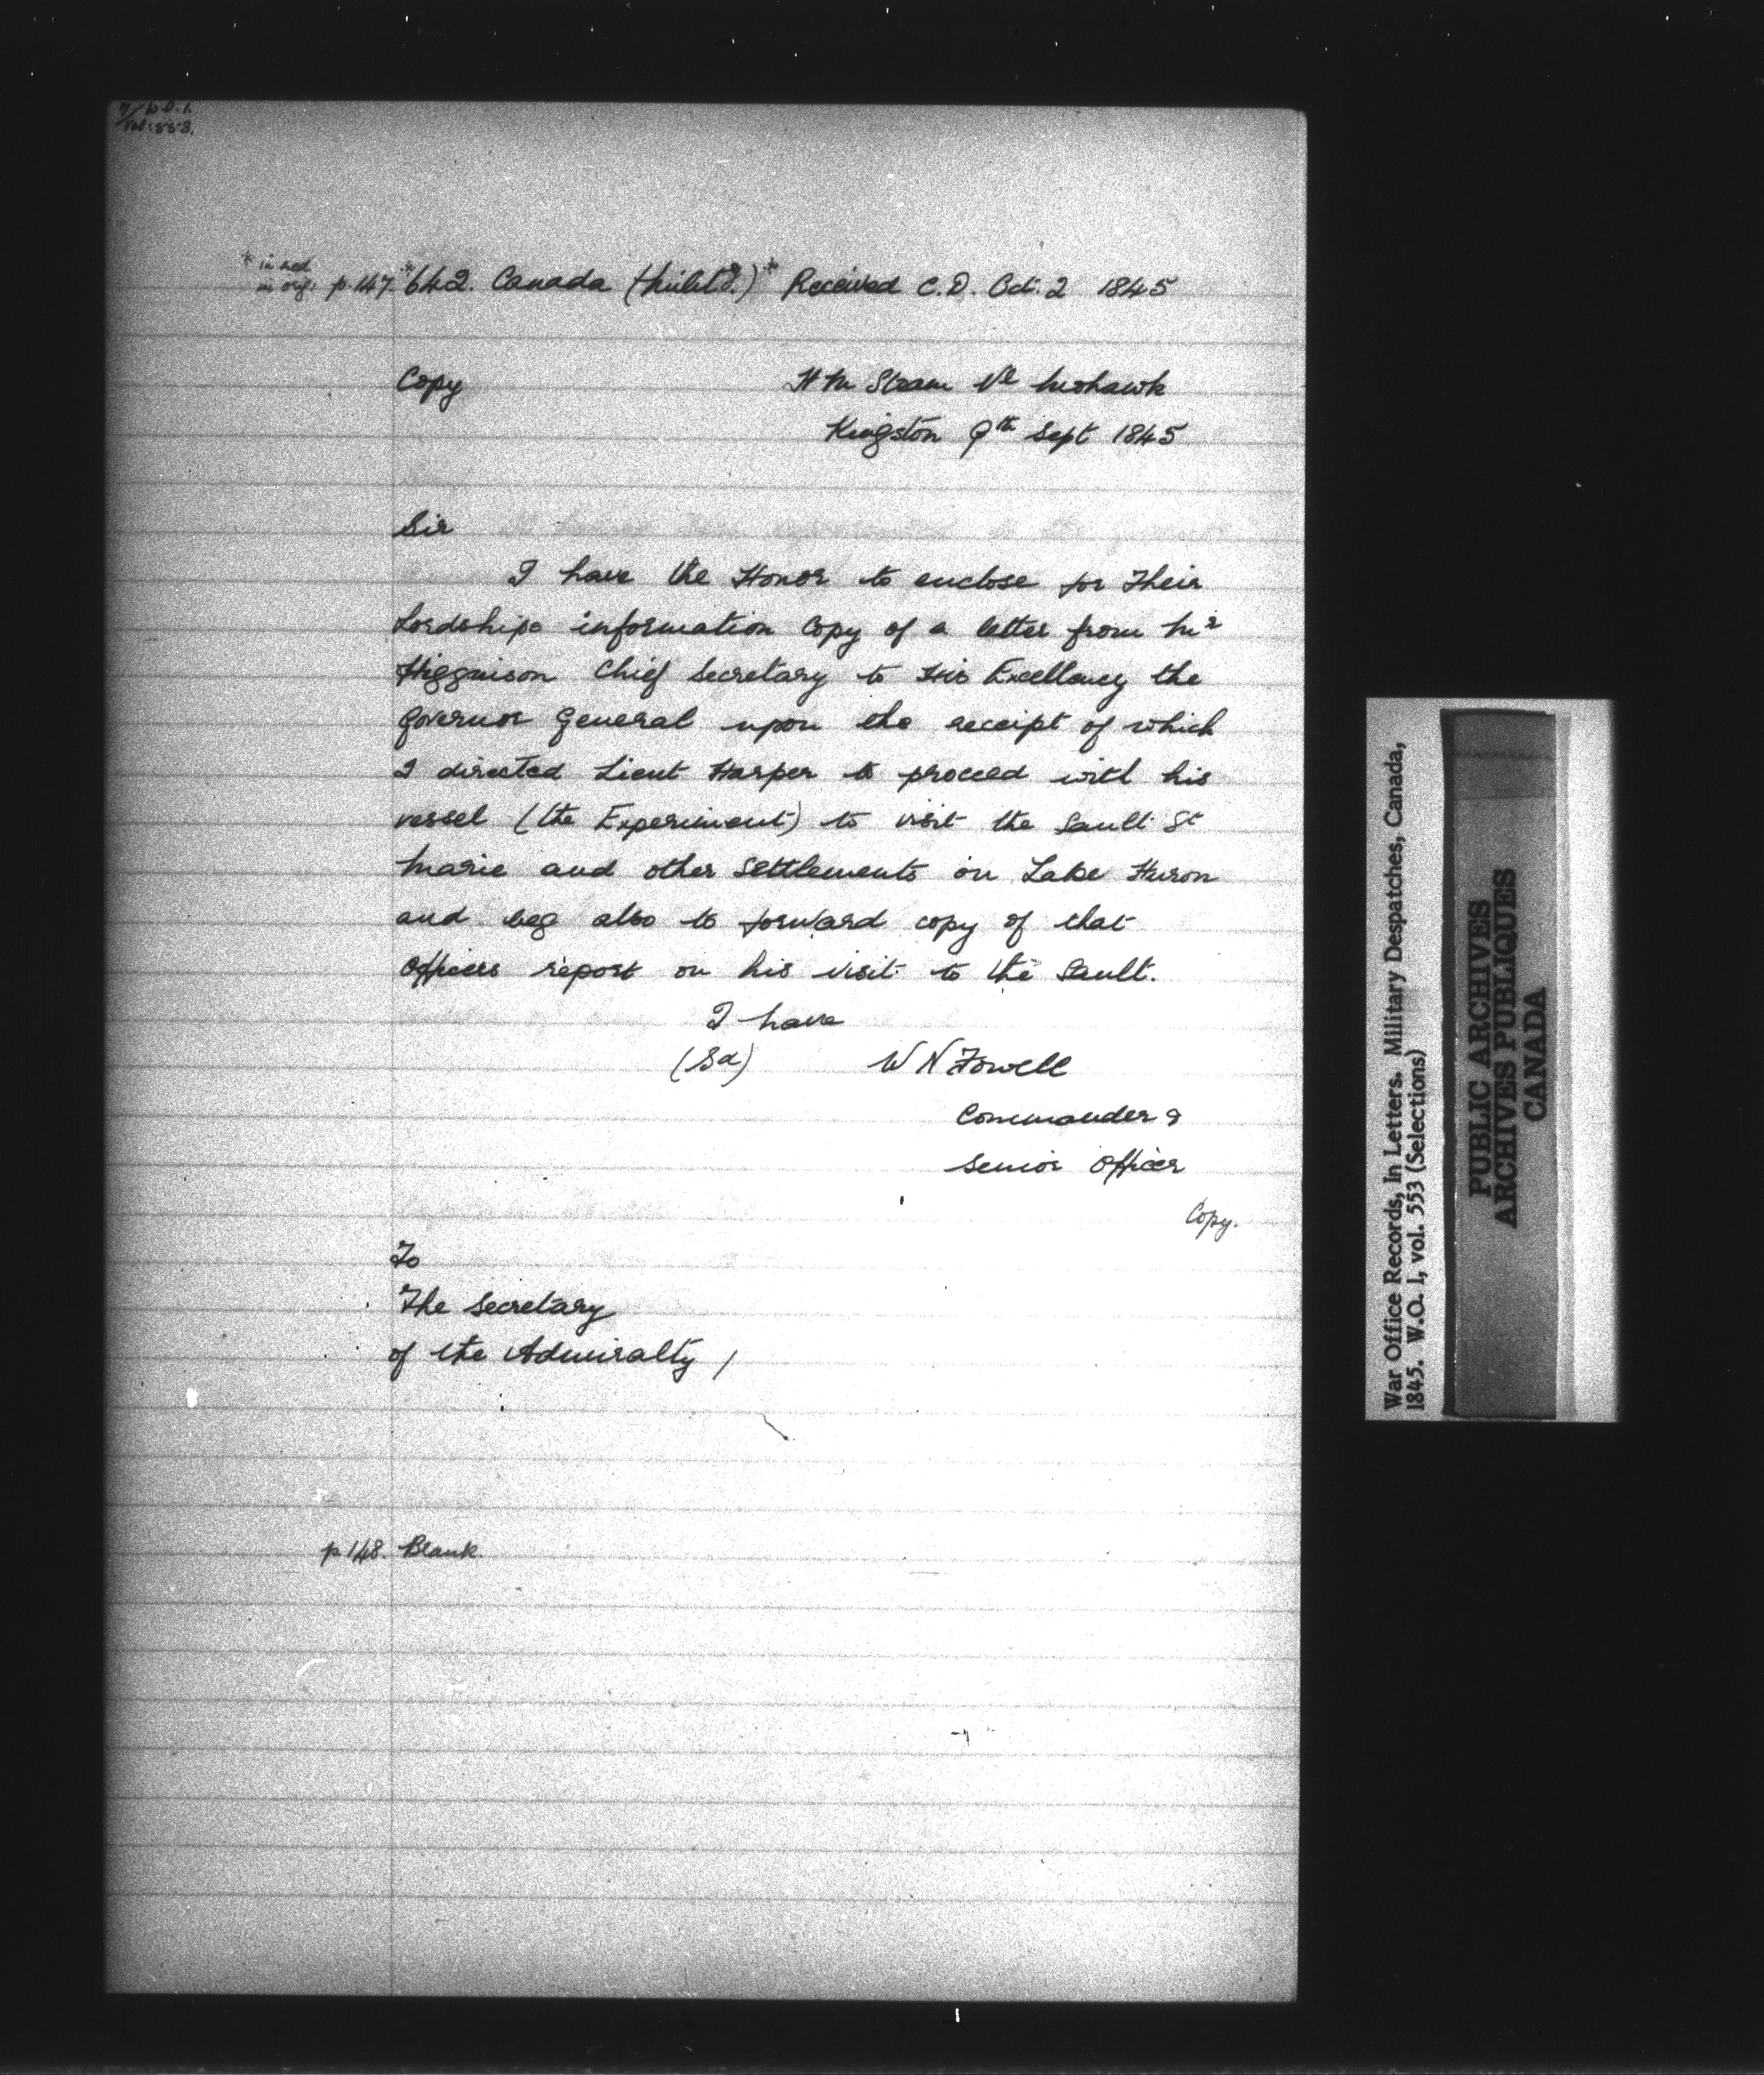 W.O.1.
Vol: 553.
* in red
in orig. p.147. *642. Canada (Milit.y.)* Received C.D. Oct. 2 1845
Copy
H M Steam Vl Mohawk
Kingston 9th Sept 1845
Sir
I have the Honor to enclose for Their
Lordships information Copy of a letter from Mr
Higginson Chief Secretary to His Excellency the
Governor General upon the receipt of which
I directed Lieut Harper to proceed with his
vessel (the Experiment) to visit the Sault St
Marie and other Settlements on Lake Huron
and beg also to forward copy of that
Officers report on his visit to the Sault.
I have
(Sd) W N Fowell
Commander &
Senior Officer
Copy.
To
The Secretary
of the Admiralty /
p.148. Blank.
War Office Records, In Letters. Military Despatches, Canada,
1845. W.O. 1, vol. 553 (Selections)
PUBLIC ARCHIVES
ARCHIVES PUBLIQUES
CANADA